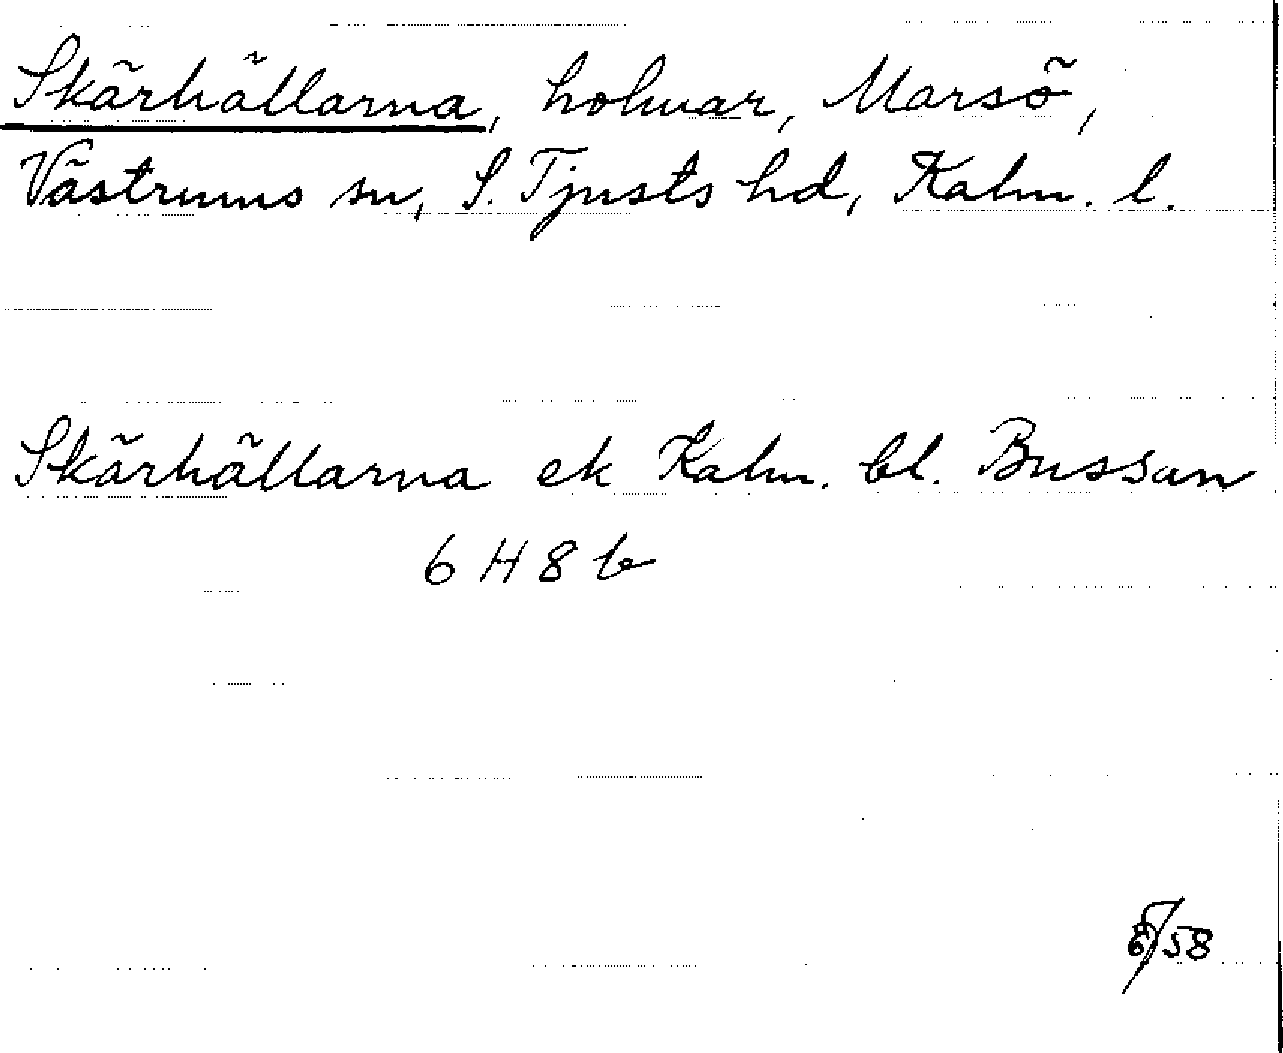 Skärhällarna, holmar, Marsö,
Västrums sn, S. Tjusts hd, Kalm. l.
Skärhällarna ek Kalm. bl. Bussan
6 H 8 b
/58